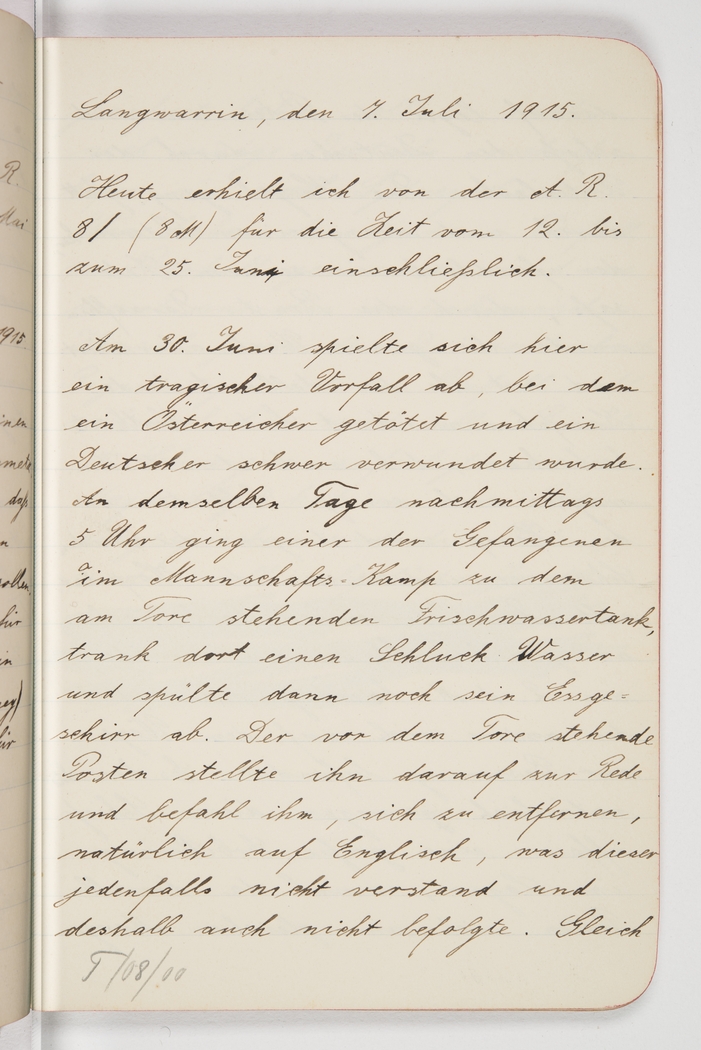 R.
Mai
1915.
Langwarrin, den 7. Juli 1915.
Heute erhielt ich von der A. R.
8/ (8 M) für die Zeit vom 12. bis
zum 25. Juni einschließlich.
Am 30. Juni spielte sich hier
ein tragischer Vorfall ab, bei dem
ein Österreicher getötet und ein
Deutscher schwer verwundet wurde.
An demselben Tage nachmittags
5 Uhr ging einer der Gefangenen
im Mannschafts-Kamp zu dem
am Tore stehenden Frischwassertank,
trank dort einen Schluck Wasser
und spülte dann noch sein Essge=
schirr ab. Der vor dem Tore stehende
Posten stellte ihn darauf zur Rede
und befahl ihm, sich zu entfernen,
natürlich auf Englisch, was dieser
jedenfalls nicht verstand und
deshalb auch nicht befolgte. Gleich